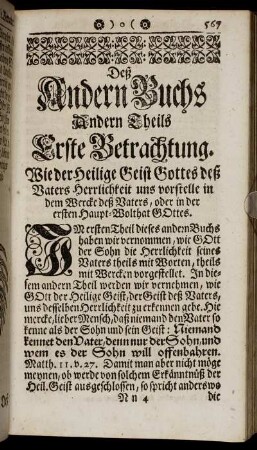 )o( 567
Deß
Andern Buchs
Andern Theils
Erste Betrachtung.
Wie der Heilige Geist Gottes deß
Vaters Herrlichkeit uns vorstelle in
dem Wercke deß Vaters, oder in der
ersten Haupt-Wolthat GOttes.
IM ersten Theil dieses andern Buchs
haben wir vernommen, wie GOtt
der Sohn die Herrlichkeit seines
Vaters theils mit Worten, theils
mit Wercken vorgestellet. In die-
sem andern Theil werden wir vernehmen, wie
GOtt der Heilige Geist, der Geist deß Vaters,
uns desselben Herrlichkeit zu erkennen gebe. Hie
mercke, lieber Mensch, daß niemand den Vater so
kenne als der Sohn und sein Geist: Niemand
kennet den Vater, denn nur der Sohn, und
wem es der Sohn will offenbahren.
Matth. 11. v. 27. Damit man aber nicht möge
meynen, ob werde von solchem Erkänntnüß der
Heil. Geist ausgeschlossen, so spricht anderswo
Nn 4 die